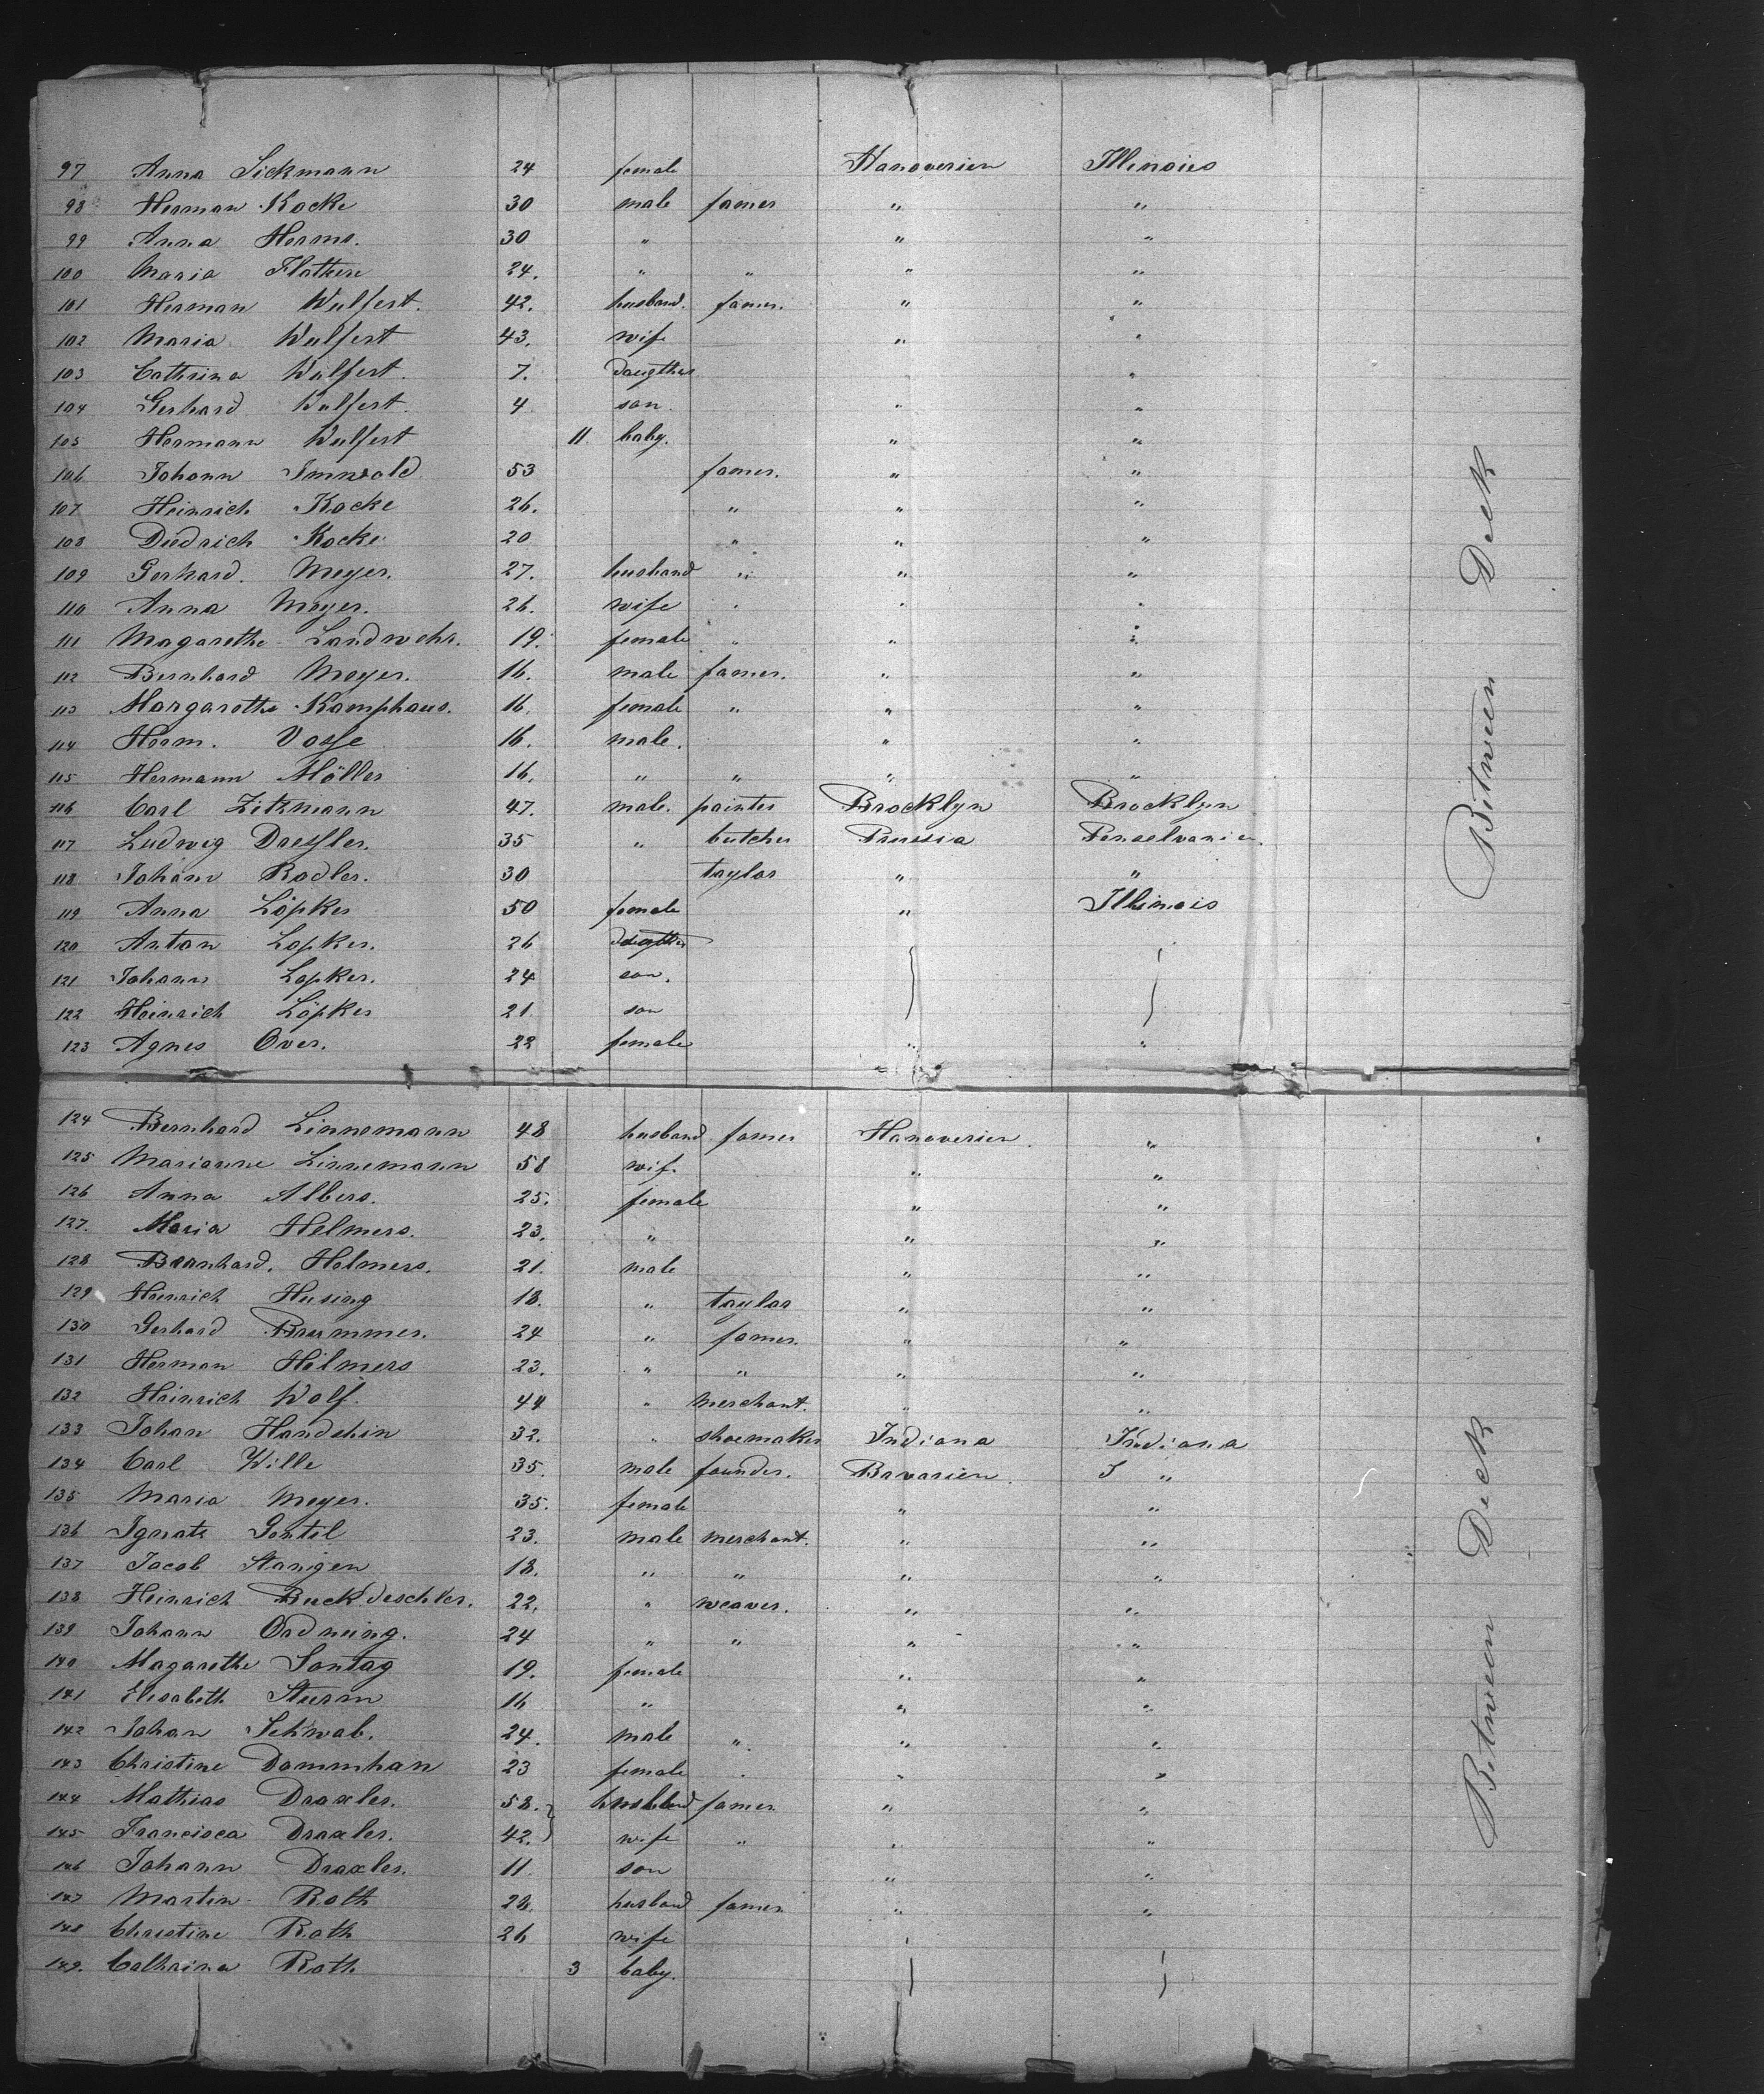 97 Anna Sickmann 24 female Hanoverien Illinoies
98 Herman Kocke 30 male famer " "
99 Anna Herms. 30 " " "
100 Maria 24. " " " "
101 Herman Wulfert. 42. husband. famer. " "
102 Maria Wulfert 43. wife " "
103 Cathrina Wulfert. 7. daugther "
104 Gerhard Wulfert. 4 son. " "
105 Hermann Wulfert 11. baby. " "
106 Johann 53 famer. " "
107 Heinrich Kocke 26. " " "
108 Diedrich Kocke 20 " " "
109 Gerhard. Meyer. 27. husband " " "
110 Anna Meyer. 26. wife " " "
111 Magarethe Landwehr. 19. female " " "
112 Bernhard Meyer. 16. male famer. " "
113 Margarethe Kamphaus. 16. female " " "
114 Herm. Vosse 16. male. " "
115 Hermann Möller 16. " " " "
116 Carl Zitzmann 47. male. painter Brocklyn Brocklyn
117 Ludwig Dressler. 35 " butcher Prussia Penselvanien.
118 Johann Rodler. 30 taylor " "
119 Anna Löpker 50 female " Illinois
120 Antan Lopker. 26 daugther
121 Johann Lopker. 24 son.
122 Heinrich Löpker 21. son
123 Agnes Over. 22 female " "
Bitween Deck
124 Bernhard Linnemann 48 husband famer Hanoverien. "
125 Marianne Linnemann 58 wife. " "
126 Anna Albers. 25. female " "
127. Maria Helmers. 23. " " "
128 Bernhard. Helmers. 21. male " "
129 Heinrich Husing 18. " taylor " "
130 Gerhard Brummer. 24 " famer. " "
131 Herman Helmers 23. " " " "
132 Heinrich Wolf. 44 " merchant. " "
133 Johan Handshin 32. " shoemaker Indiana Indiana
134 Carl Wille 35. male founder. Bavarien. I "
135 Maria Meyer. 35. female " "
136 Ignatz Gentil 23. male merchant. " "
137 Jacob Stangen 18. " " " "
138 Heinrich Buckdeschler. 22. " weaver. " "
139 Johann Ordnung. 24 " " " "
140 Magarethe Sontag 19. female " "
141 Elisabeth Sturm 16 " " "
142 Johan Schwab. 24. male " " "
143 Christine Dammhan 23 female " " "
144 Mathias Draxler. 58. husband famer " "
145 Francisca Draxler. 42. wife " " "
146 Johann Draxler. 11. son " "
147 Martin Roth 28. husband famer " "
148 Christine Roth 26 wife "
149. Cathrina Roth 3 baby.
Between Deck